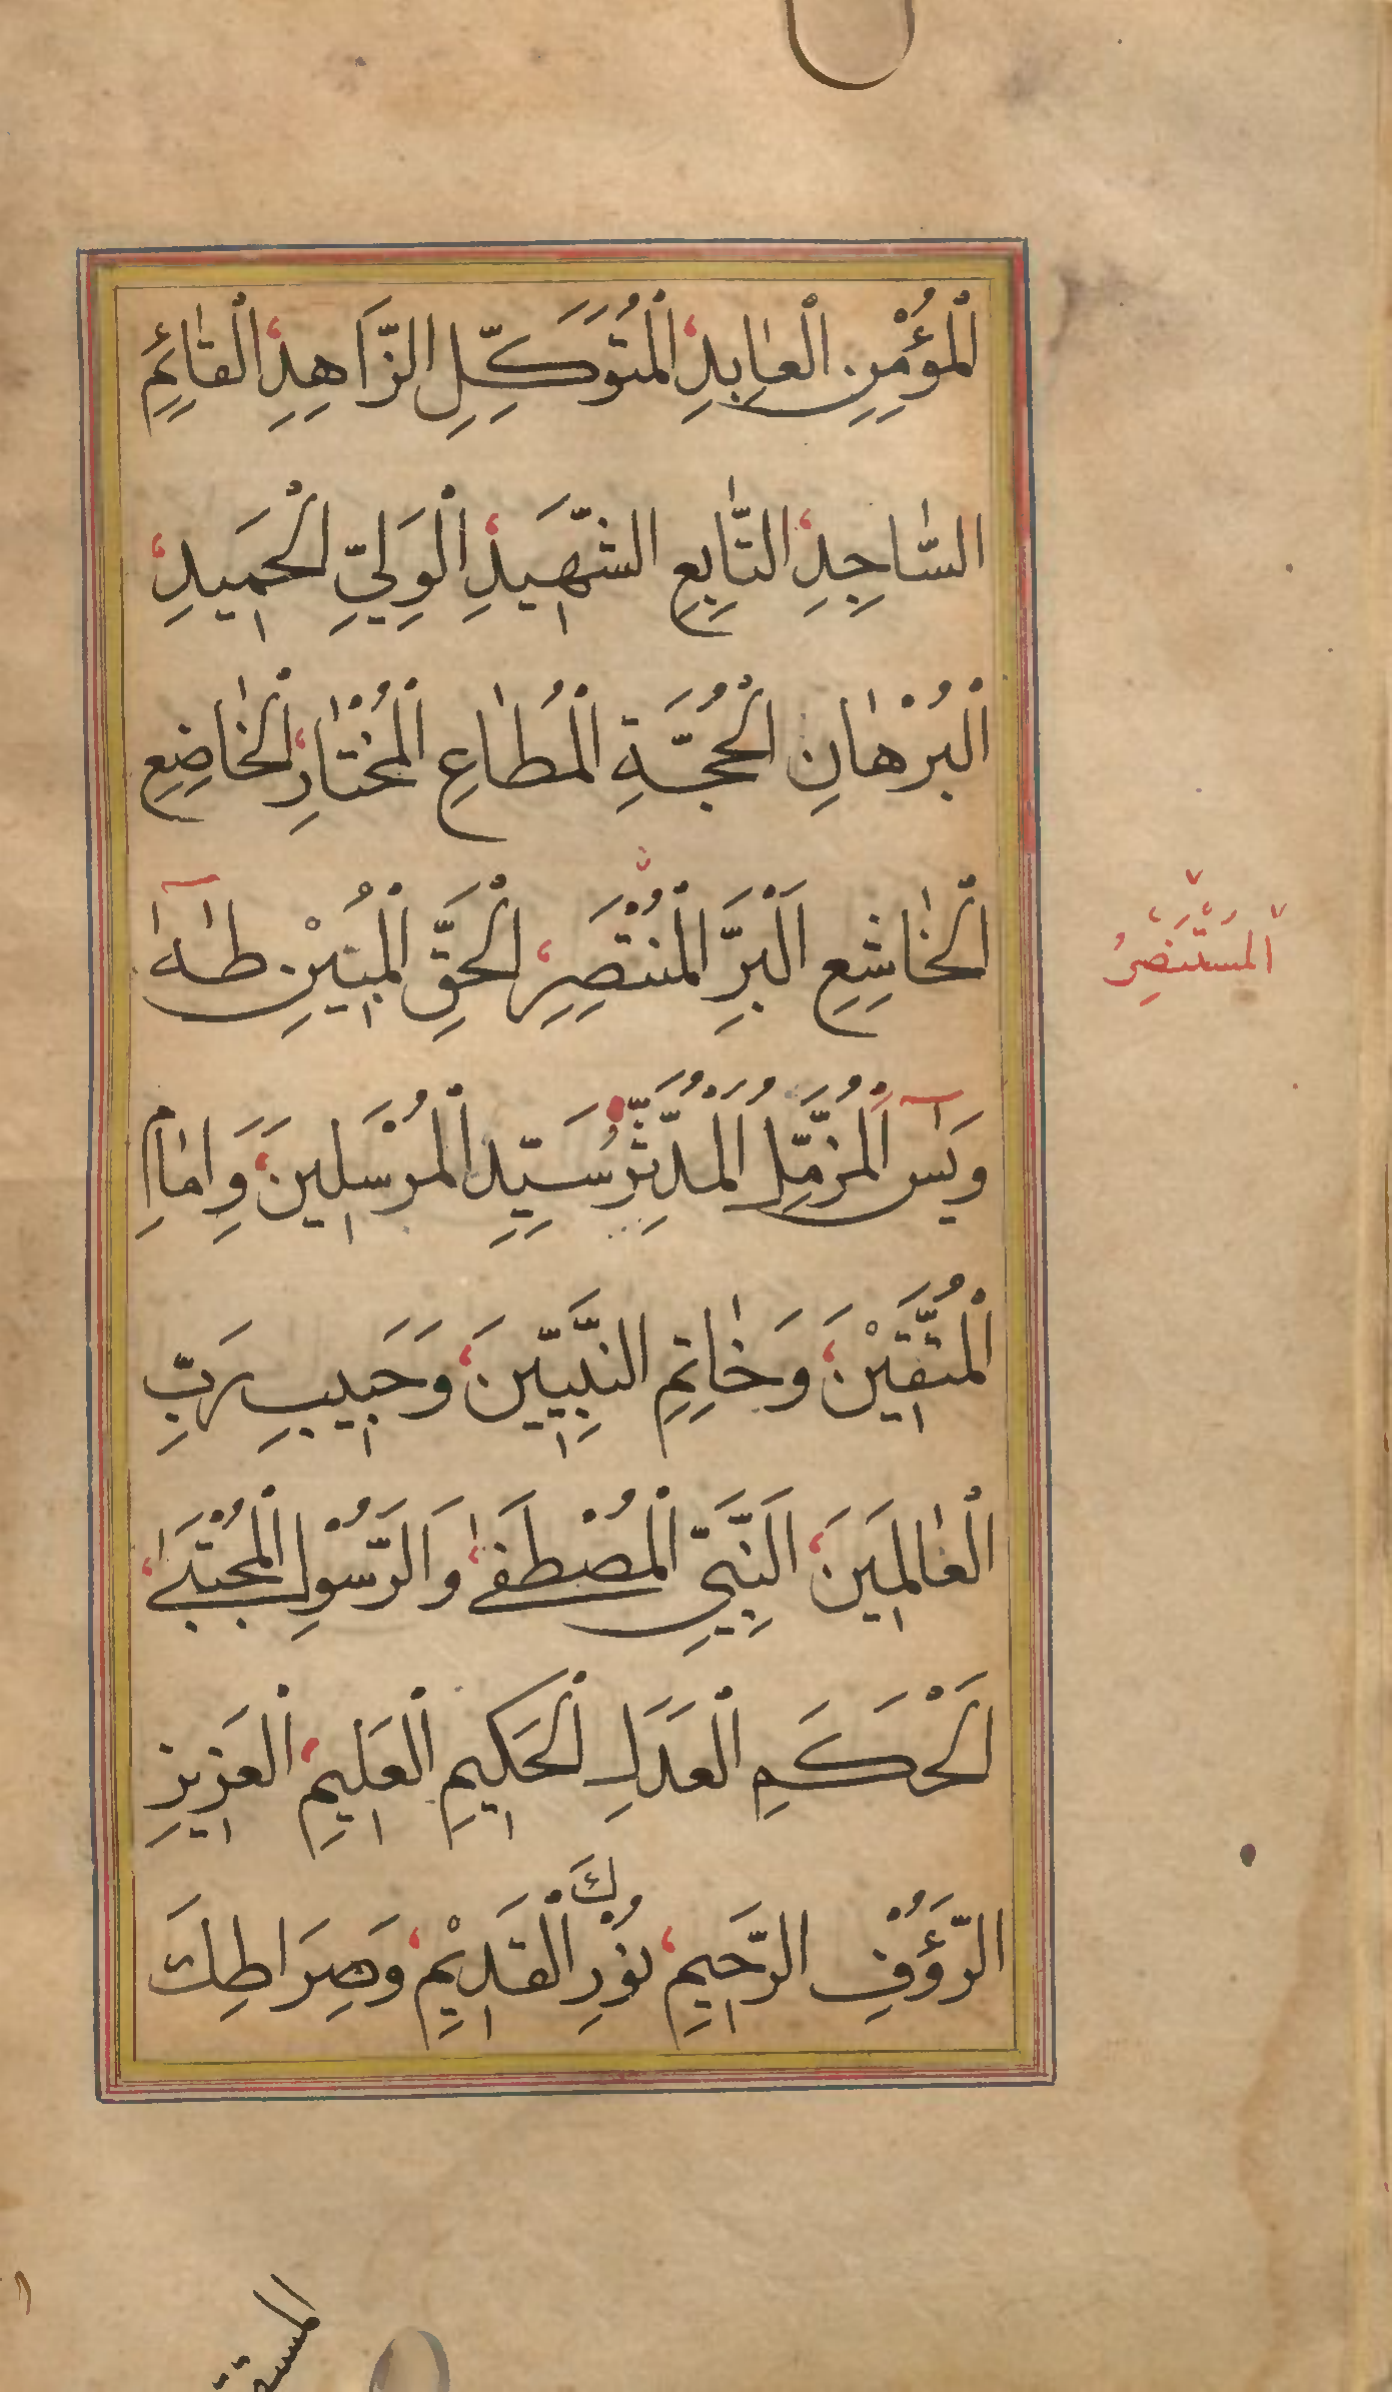 اَلْمُؤْمِنِ الْعَابِدِ الْمُتَوَكِّلِ الزَّاهِدِ الْقَائِمِ
السَّاجِدِ التَّابِعِ الشَّهِيدِ الْوَلِيِّ الْحَمِيدِ
الْبُرْهَانِ الْحُجَّةِ الْمُطَاعِ الْمُخْتَارِ الْخَاضِعِ
الْخَاشِعِ الْبَرِّ الْمُنْتَصِرِ الْحَقِّ الْمُبِيْنِ طٰهٰ
الْمُسْتَنْصِرُ
وَيٰسٓ الْمُزَّمِّلِ الْمُدَّثِّرِ سَيِّدِ الْمُرْسَلِينَ وَاِمَامِ
الْمُتَّقِيْنَ وَخَاتِمِ النَّبِيِّينَ وَحَبِيبِ رَبِّ
الْعَالَمِينَ النَّبِيِّ الْمُصْطَفٰى وَالرَّسُوْلِ الْمُجْتَبٰى
اَلْحَكَمِ الْعَدْلِ الْحَكِيمِ الْعَلِيمِ الْعَزِيزِ
الرَّؤُفِ الرَّحِيمِ نُوْرِكَ الْقَدِيْمِ وَصِرَاطِكَ
المستقي